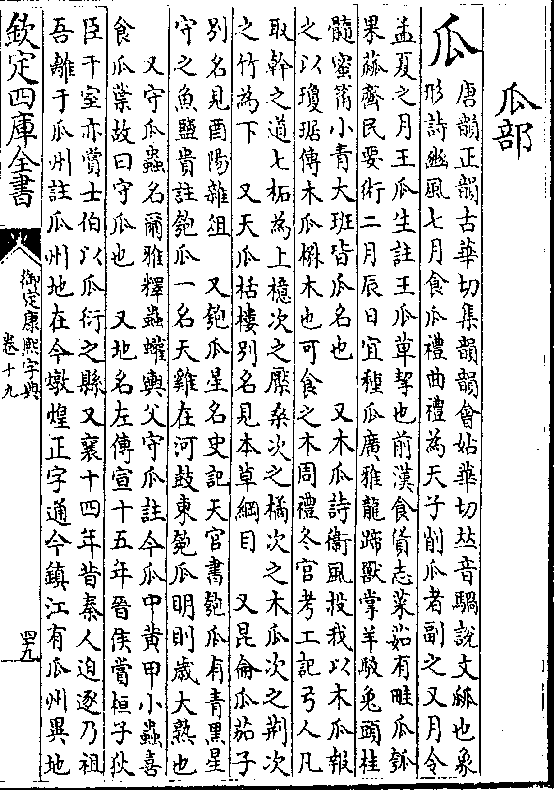 瓜部
瓜
唐韻正韻古華切集韻韻會姑華切𠀤音騧說文㼌也象
形詩豳風七月食瓜禮曲禮為天子削瓜者副之又月令
孟夏之月王瓜生註王瓜草挈也前漢食貨志菜茹有畦瓜瓠
果蓏齊民要術二月辰日宜種瓜廣雅龍蹄獸掌羊骹兔頭桂
髓蜜筩小青大班皆瓜名也　又木瓜詩衞風投我以木瓜報
之以瓊琚傳木瓜楙木也可食之木周禮冬官考工記弓人凡
取幹之道七柘為上檍次之檿桑次之橘次之木瓜次之荆次
之竹為下　又天瓜栝樓别名見本草綱目　又昆侖瓜茄子
别名見酉陽雜俎　又匏瓜星名史記天官書匏瓜有青黑星
守之魚鹽貴註匏瓜一名天雞在河鼓東匏瓜明則歲大熟也
又守瓜蟲名爾雅釋蟲蠸輿父守瓜註今瓜中黄甲小蟲喜
食瓜葉故曰守瓜也　又地名左傳宣十五年晉侯賞桓子狄
臣千室亦賞士伯以瓜衍之縣又襄十四年昔秦人迫逐乃祖
吾離于瓜州註瓜州地在今燉煌正字通今鎮江有瓜州異地
欽定四庫全書
御定康熙字典
卷十九
四九